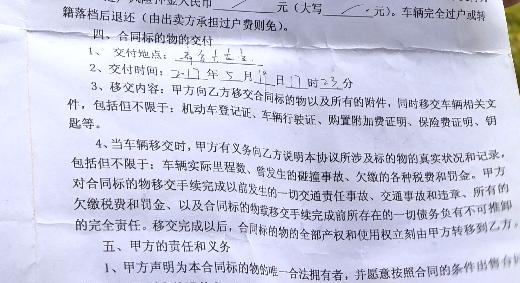 元（大写 元）。车辆完全过户或转
籍落档后退还（由出卖方承担过户费则免）。
四、合同标的物的交付
1、交付地点：
2、交付时间：2017年5月19日17时23分
3、移交内容：甲方向乙方移交合同标的物以及所有的附件，同时移交车辆相关文
件，包括但不限于：机动车登记证、车辆行驶证、购置附加费证明、保险费证明、钥
匙等。
4、当车辆移交时，甲方有义务向乙方说明本协议所涉及标的物的真实状况和记录，
包括但不限于：车辆实际里程数、曾发生的碰撞事故、欠缴的各种税费和罚金。甲方
对合同标的物移交手续完成以前发生的一切交通责任事故、交通事故和违章、所有的
欠缴税费和罚金、以及合同标的物移交手续完成前所存在的一切债务负有不可推卸
的完全责任。移交完成以后，合同标的物的全部产权和使用权立刻由甲方转移到乙方。
五、甲方的责任和义务
1、甲方声明为本合同标的物的唯一合法拥有者，并愿意按照合同的条件出售合同